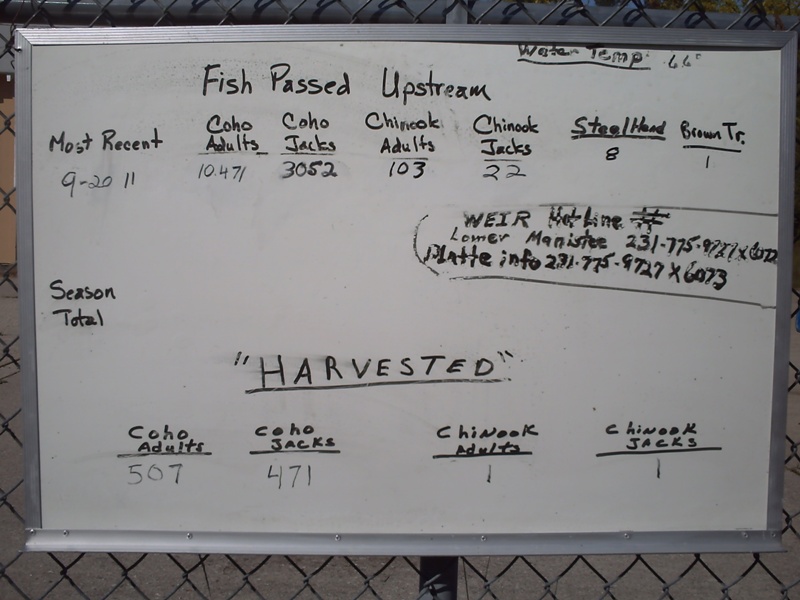 Water Temp. 66°
Fish Passed Upstream
Most Recent
9-20 11
Coho Adults
10.471
Coho Jacks
3052
Chinook Adults
103
Chinook Jacks
22
SteelHead
8
Brown Tr.
1
WEIR HotLine #
Lower Manistee 231-775-9727 x 6072
Platte info 231-775-9727 x 6073
Season
Total
"HARVESTED"
Coho Adults
507
Coho JACKS
471
ChiNooK Adults
1
ChiNooK JACKS
1